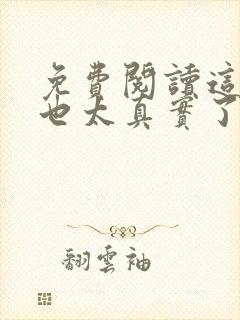 免費閱讀這
也太真實了
翻雲袖